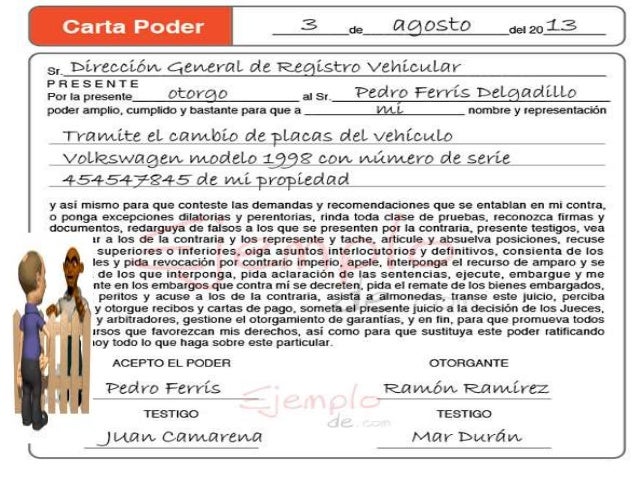 Carta Poder 3 de agosto del 20 13
Sr. Dirección General de Registro Vehicular
PRESENTE
Por la presente otorgo al Sr. Pedro Ferrís Delgadillo
poder amplio, cumplido y bastante para que a mi nombre y representación
Tramite el cambio de placas del vehículo
Volkswagen modelo 1998 con número de serie
454547845 de mi propiedad
y así mismo para que conteste las demandas y recomendaciones que se entablan en mi contra,
o ponga excepciones dilatorias y perentorias, rinda toda clase de pruebas, reconozca firmas y
documentos, redarguya de falsos a los que se presenten por la contraria, presente testigos, vea
ar a los de la contraria y los represente y tache, articule y absuelva posiciones, recuse
superiores o inferiores, oiga asientos interlocutorios y definitivos, consienta de los
les y pida revocación por contrario imperio, apele, interponga el recurso de amparo y se
de los que interponga, pida aclaración de las sentencias, ejecute, embargue y me
nte en los embargos que contra mí se decreten, pida el remate de los bienes embargados,
peritos y acuse a los de la contraria, asista a almonedas, transe este juicio, perciba
y otorgue recibos y cartas de pago, someta el presente juicio a la decisión de los Jueces,
y arbitradores, gestione el otorgamiento de garantías, y en fin, para que promueva todos
ursos que favorezcan mis derechos, así como para que sustituya este poder ratificando
hoy todo lo que haga sobre este particular.
ACEPTO EL PODER OTORGANTE
Pedro Ferrís Ramón Ramírez
Ejemplo
de.com
TESTIGO TESTIGO
Juan Camarena Mar Durán